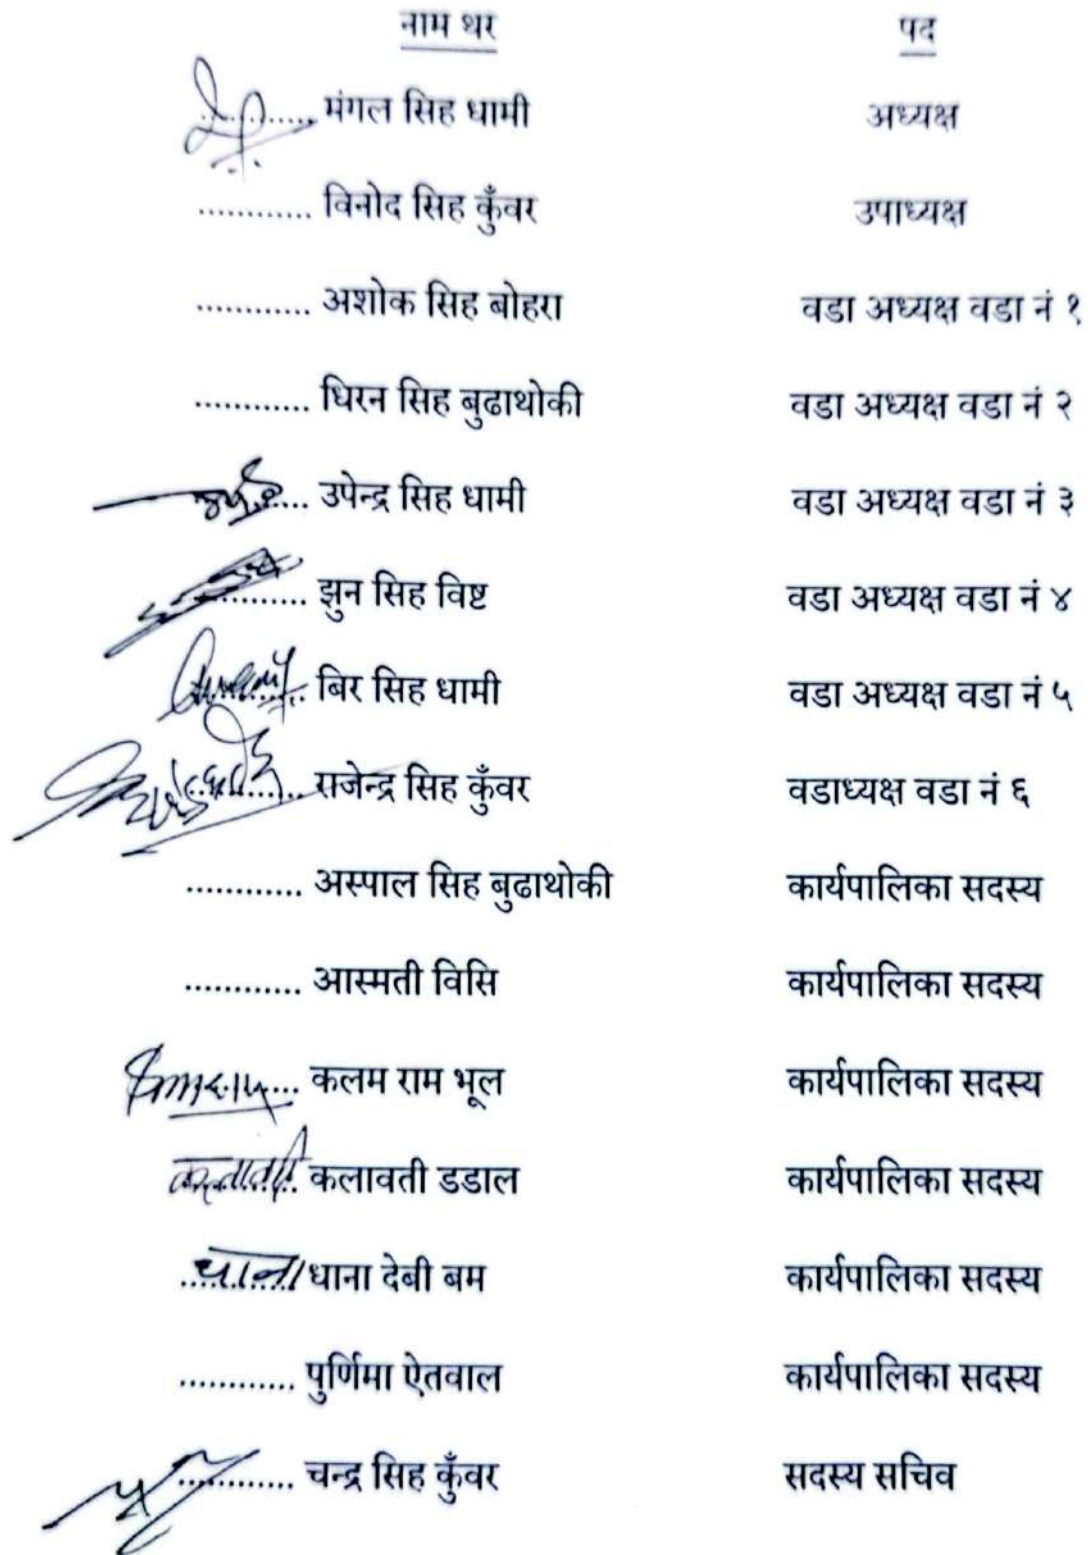 नाम थर पद
............ मंगल सिह धामी अध्यक्ष
............ विनोद सिह कुँवर उपाध्यक्ष
............ अशोक सिह बोहरा वडा अध्यक्ष वडा नं १
............ धिरन सिह बुढाथोकी वडा अध्यक्ष वडा नं २
............ उपेन्द्र सिह धामी वडा अध्यक्ष वडा नं ३
............ झुन सिह विष्ट वडा अध्यक्ष वडा नं ४
............ बिर सिह धामी वडा अध्यक्ष वडा नं ५
............ राजेन्द्र सिह कुँवर वडाध्यक्ष वडा नं ६
............ अस्पाल सिह बुढाथोकी कार्यपालिका सदस्य
............ आस्मती विसि कार्यपालिका सदस्य
............ कलम राम भूल कार्यपालिका सदस्य
कलावती कलावती डडाल कार्यपालिका सदस्य
धाना धाना देबी बम कार्यपालिका सदस्य
............ पुर्णिमा ऐतवाल कार्यपालिका सदस्य
............ चन्द्र सिह कुँवर सदस्य सचिव